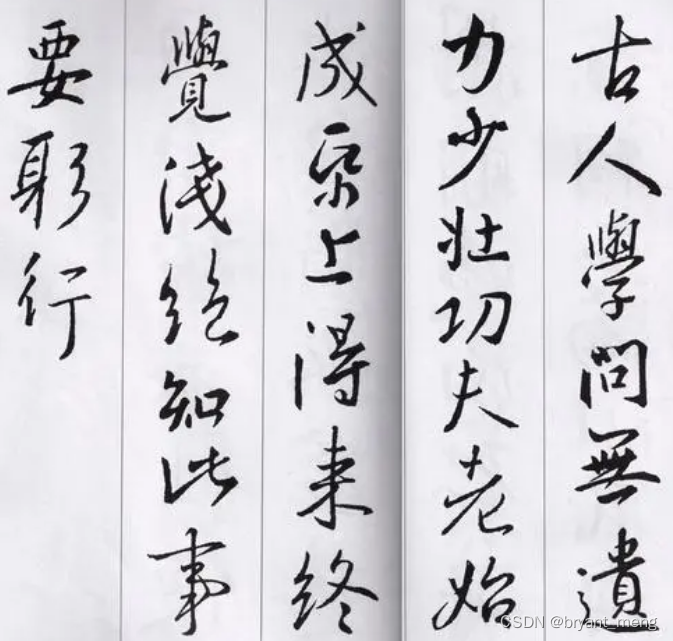 古人學問無遺
力少壯功夫老始
成帋上得來終
覺淺絕知此事
要躬行
CSDN @bryant_meng